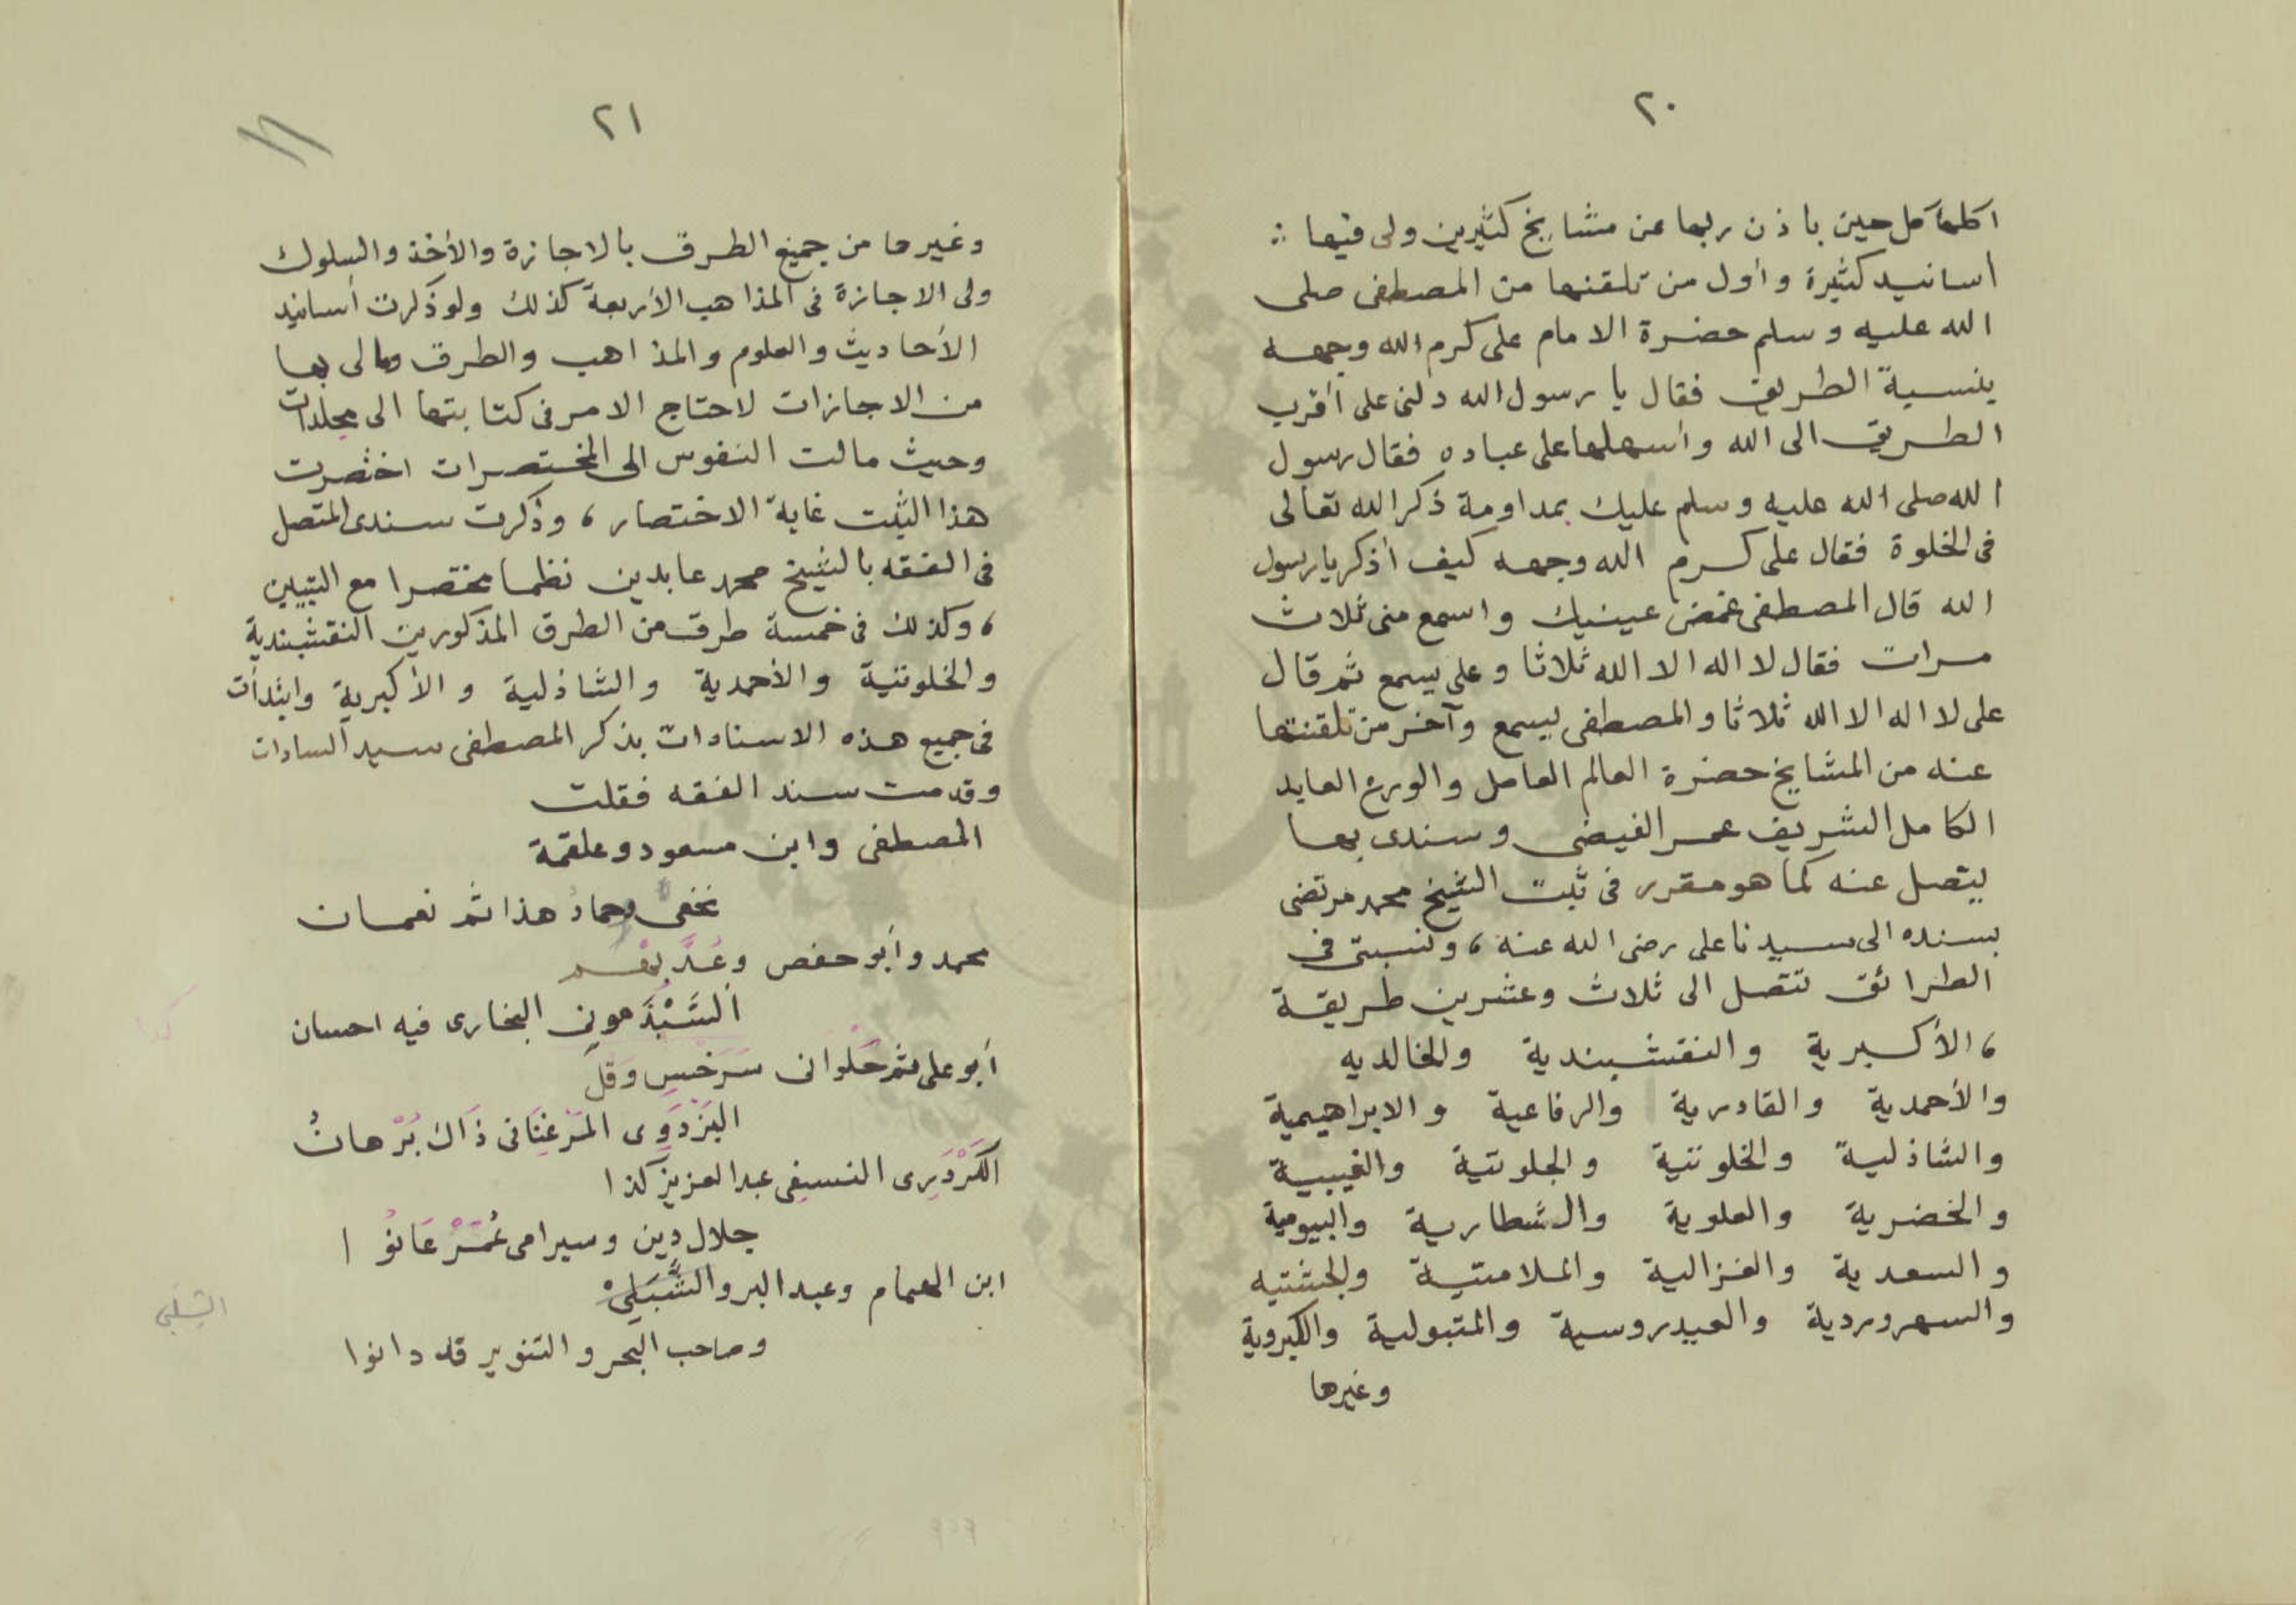 ٢٠
اكلها كل حين باذن ربها عن مشايخ كثيرين ولى فيها :
أسانيد كثيرة وأول من تلقنها من المصطفى صلى
الله عليه وسلم حضرة الامام على كرم الله وجهه
بنسبة الطريق فقال يا رسول الله دلنى على أقرب
الطريق الى الله وأسهلها على عباده فقال رسول
الله صلى الله عليه وسلم عليك بمداومة ذكر الله تعالى
فى الخلوة فقال على كرم الله وجهه كيف أذكر يا رسول
الله قال المصطفى غمض عينيك واسمع منى ثلاث
مرات فقال لا اله الا الله ثلاثا وعلى يسمع ثم قال
على لا اله الا الله ثلاثا والمصطفى يسمع وآخر من تلقنتها
عنه من المشايخ حضرة العالم العامل والورع العابد
الكامل الشريف عمر الفيضى وسندى بها
يتصل عنه كما هو مقرر فى ثبت الشيخ محمد مرتضى
بسنده الى سيدنا على رضى الله عنه ، ونسبتى فى
الطرائق تتصل الى ثلاث وعشرين طريقة
، الأكبرية والنقشبندية والخالديه
والأحمدية والقادرية والرفاعية والابراهيمية
والشاذلية والخلوتية والجلوتية والغيبية
والخضرية والعلوية والشطارية والبيومية
والسعدية والغزالية والملامتية والجشتيه
والسهروردية والعيدروسية والمتبولية والكبروية
وغيرها
٢١
وغيرها من جميع الطرق بالاجازة والأخذ والسلوك
ولى الاجازة فى المذاهب الأربعة كذلك ولو ذكرت أسانيد
الأحاديث والعلوم والمذاهب والطرق ومالى بها
من الاجازات لاحتاج الامر فى كتابتها الى مجلدات
وحيث مالت النفوس الى المختصرات اختصرت
هذا الثبت غاية الاختصار ، وذكرت سندى المتصل
فى الفقه بالشيخ محمد عابدين نظما مختصرا مع التبيين
، وكذلك فى خمسة طرق من الطرق المذكورين النقشبندية
والخلوتية والأحمدية والشاذلية والأكبرية وابتدأت
فى جميع هذه الاسنادات بذكر المصطفى سيد السادات
وقدمت سند الفقه فقلت
المصطفى وابن مسعود وعلقمة
نخعى وحمادُ هذا ثم نعمان
محمد وأبو حفص وعُدَّ بهم
اَلسَّبَذَمونى البخارى فيه احسان
أبو على ثم حَلوانى سَرَخسِ وَقل
البَزْدَوِى المَرْغِنَانى ذَاكَ بُرْهانُ
الكَرْدَرِى النسفى عبد العزيز كذا
جلال دِين وسيرامى عُمَرْ عَانُوا
ابن الهمام وعبد البر والشَّبَلِىْ
وصاحب البحر والتنوير قد دانوا
الشلبى